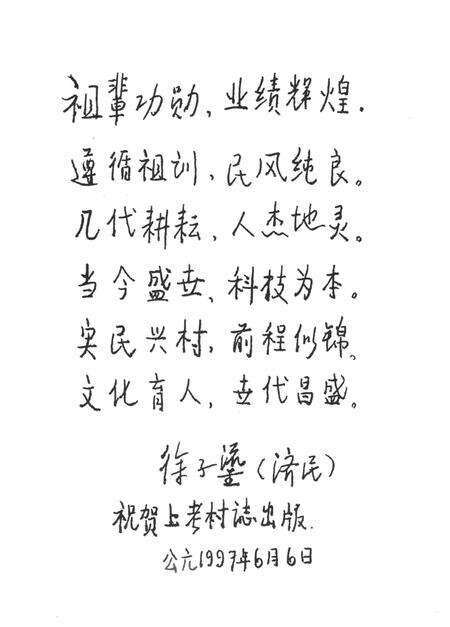 祖辈功勋、业绩辉煌.
遵循祖训、民风纯良。
几代耕耘、人杰地灵。
当今盛世、科技为本。
实民兴村，前程似锦、
文化育人，世代昌盛。
徐子鎏（济民）
祝贺上考村誌出版.
公元1997年6月6日